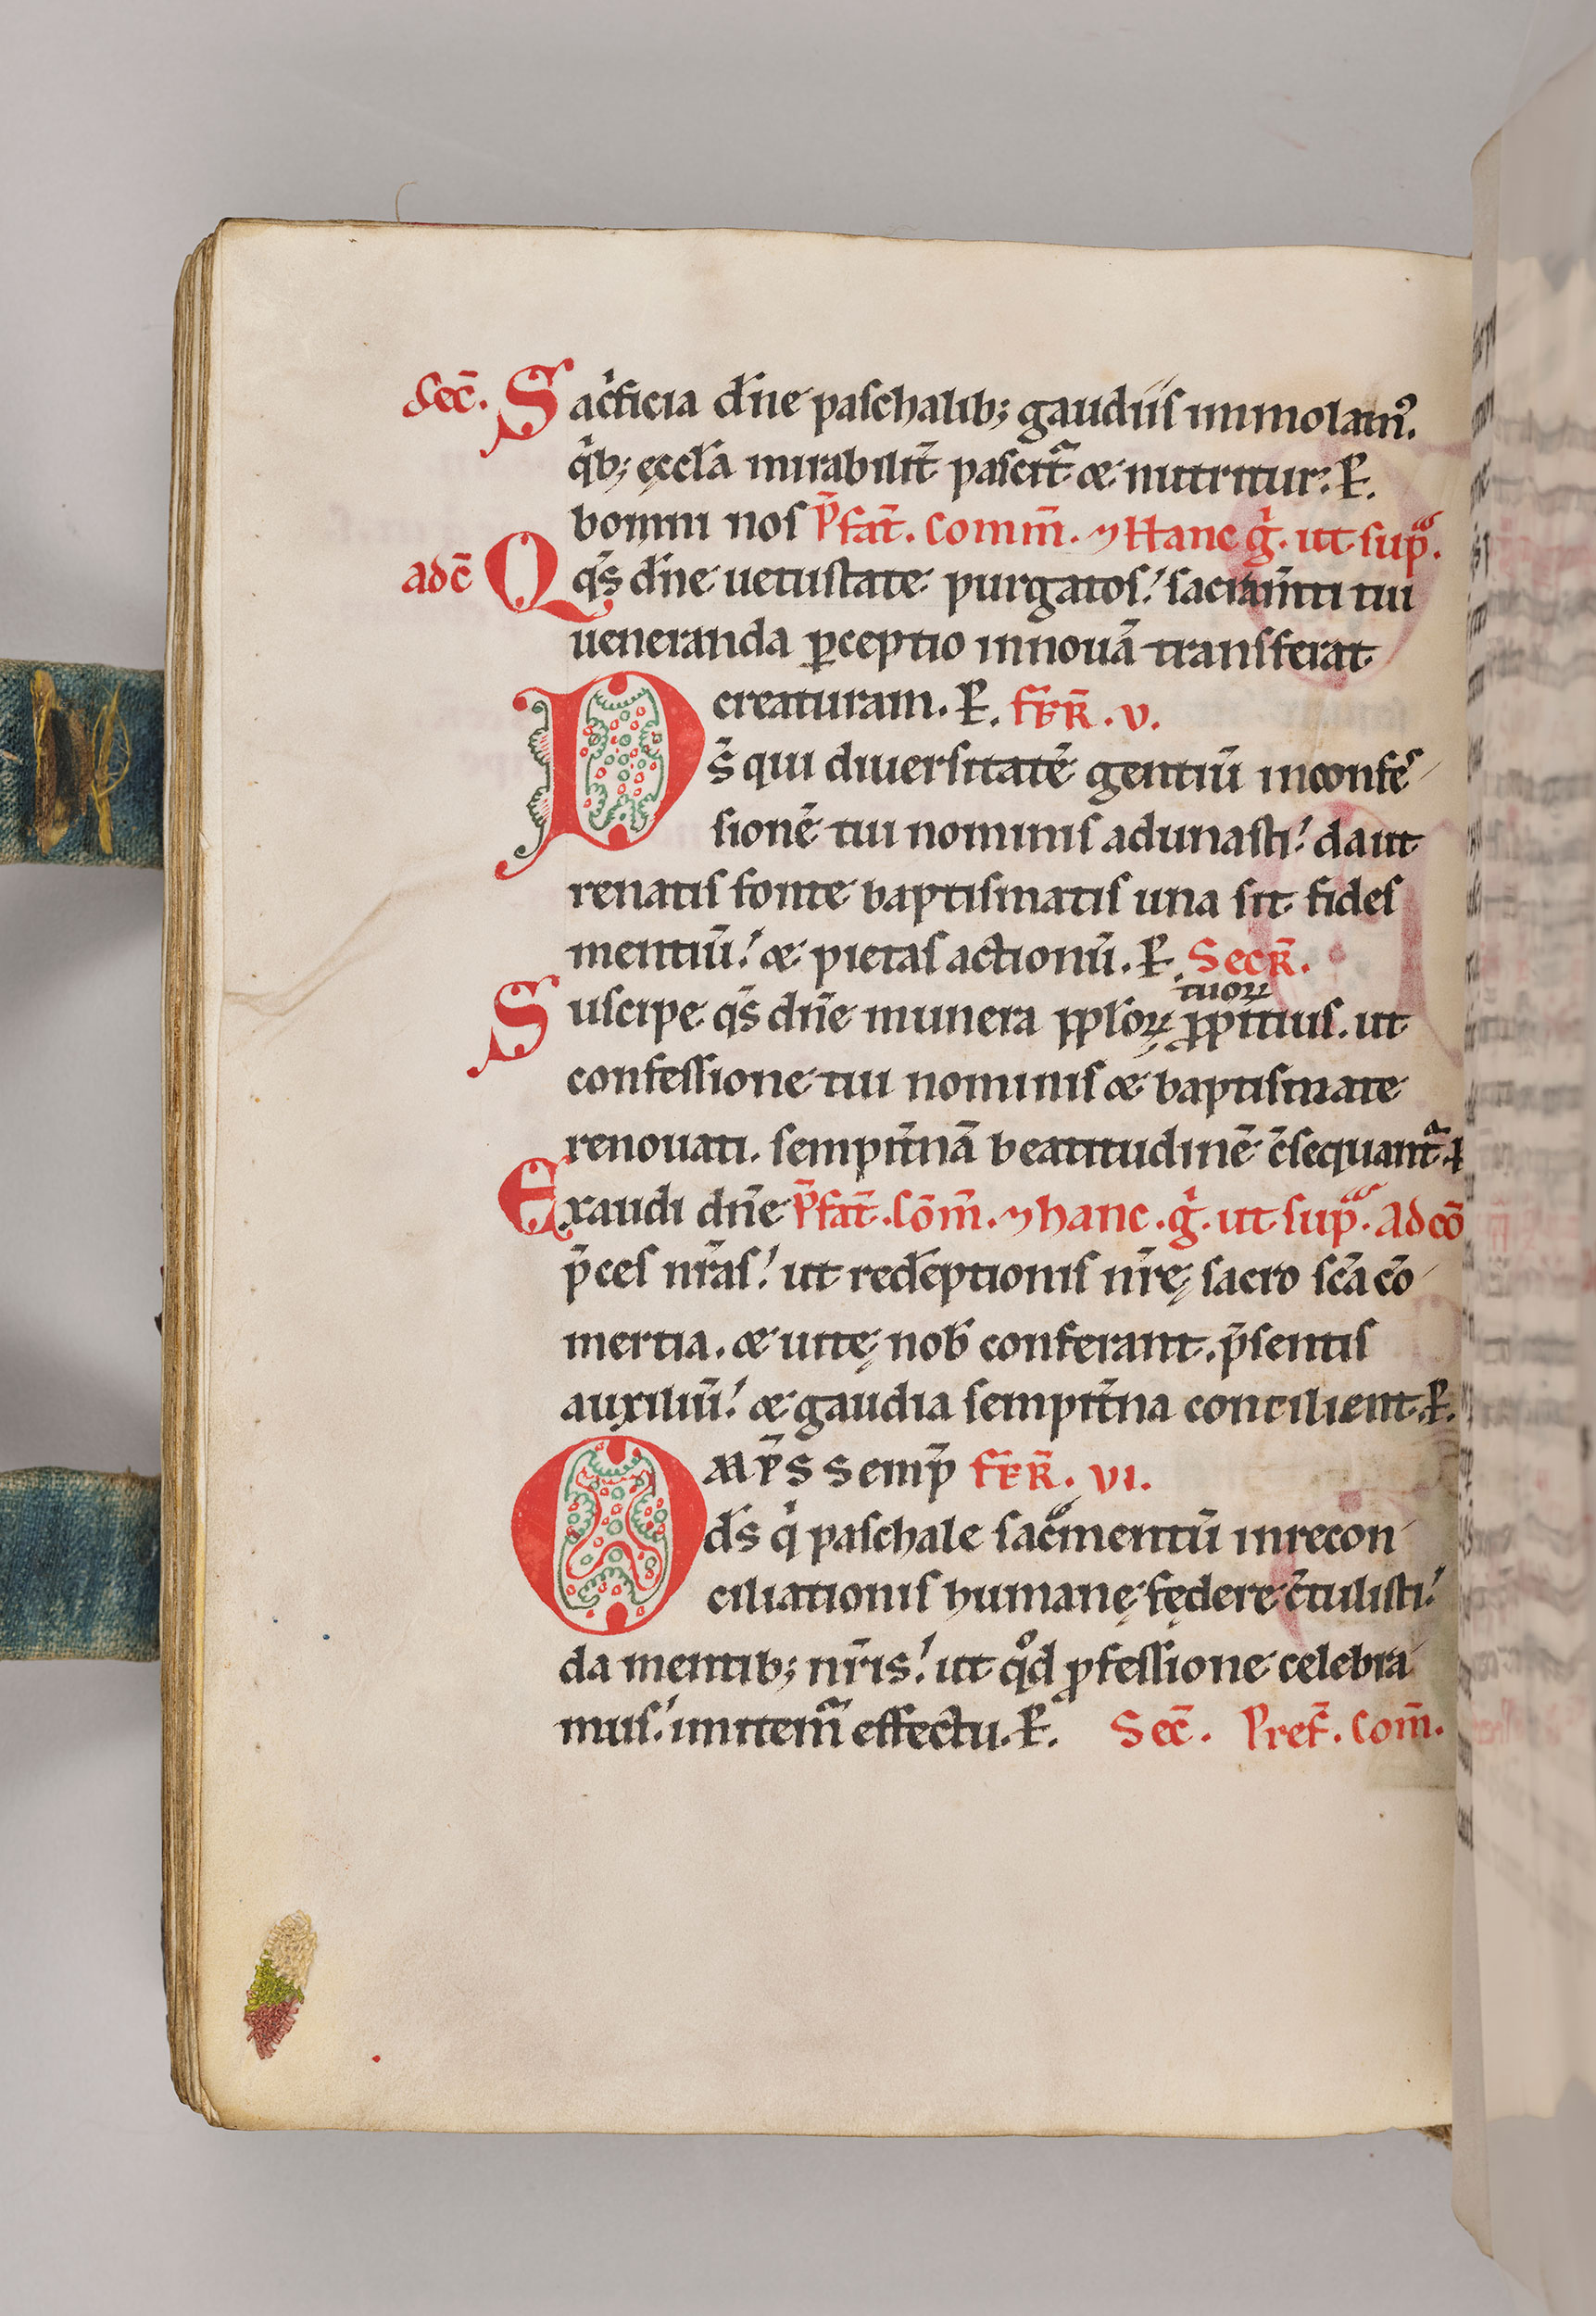 Sec̄. Sacͥficia dn̄e paschalib; gaudiis immolam᷒.
qͥb; ęccl̄a mirabilit̄ pascit᷑ & nutritur. P̱.
bomni nos P̄fat̄. Comm̄. ⁊ Hanc gͥ. ut supᷓ.
adc̄ Qq̄s dn̄e uetustate purgatos! sacram̄ti tui
ueneranda ꝑceptio in nouā transferat
creaturam. P̱. FER̄. V.
Ds̄ qui diuersitatē gentiū in confes-
sionē tui nominis adunasti! da ut
renatis fonte baptismatis una sit fides
mentiū! & pietas actionū. P̱. SecR̄.
tuoꝝ
Suscipe qs̄ dn̄e munera ppl̄oꝝ ꝓpitius. ut
confessione tui nominis & baptismate
renouati. sempit̄nā beatitudinē c̄sequant᷑. P̱
Exaudi dn̄e P̄fat̄. Com̄. ⁊ hanc. gͥ. ut supᷓ. Ad cō
p̄ces nr̄as! ut redēptionis nr̄ę sacro sc̄a cō-
mertia. & uitę nob̄ conferant. p̄sentis
auxiliū! & gaudia sempit̄na concilient. P̱.
OMP̄S Semp̄ FER̄. VI.
ds̄ qͥ paschale sacᷓmentū in recon-
ciliationis humanę fędere c̄tulisti!
da mentib; nr̄is! ut qͦd ꝓfessione celebra
mus! imitemᷣ effectu. P̱. Sec̄. Pref̄. Com̄.